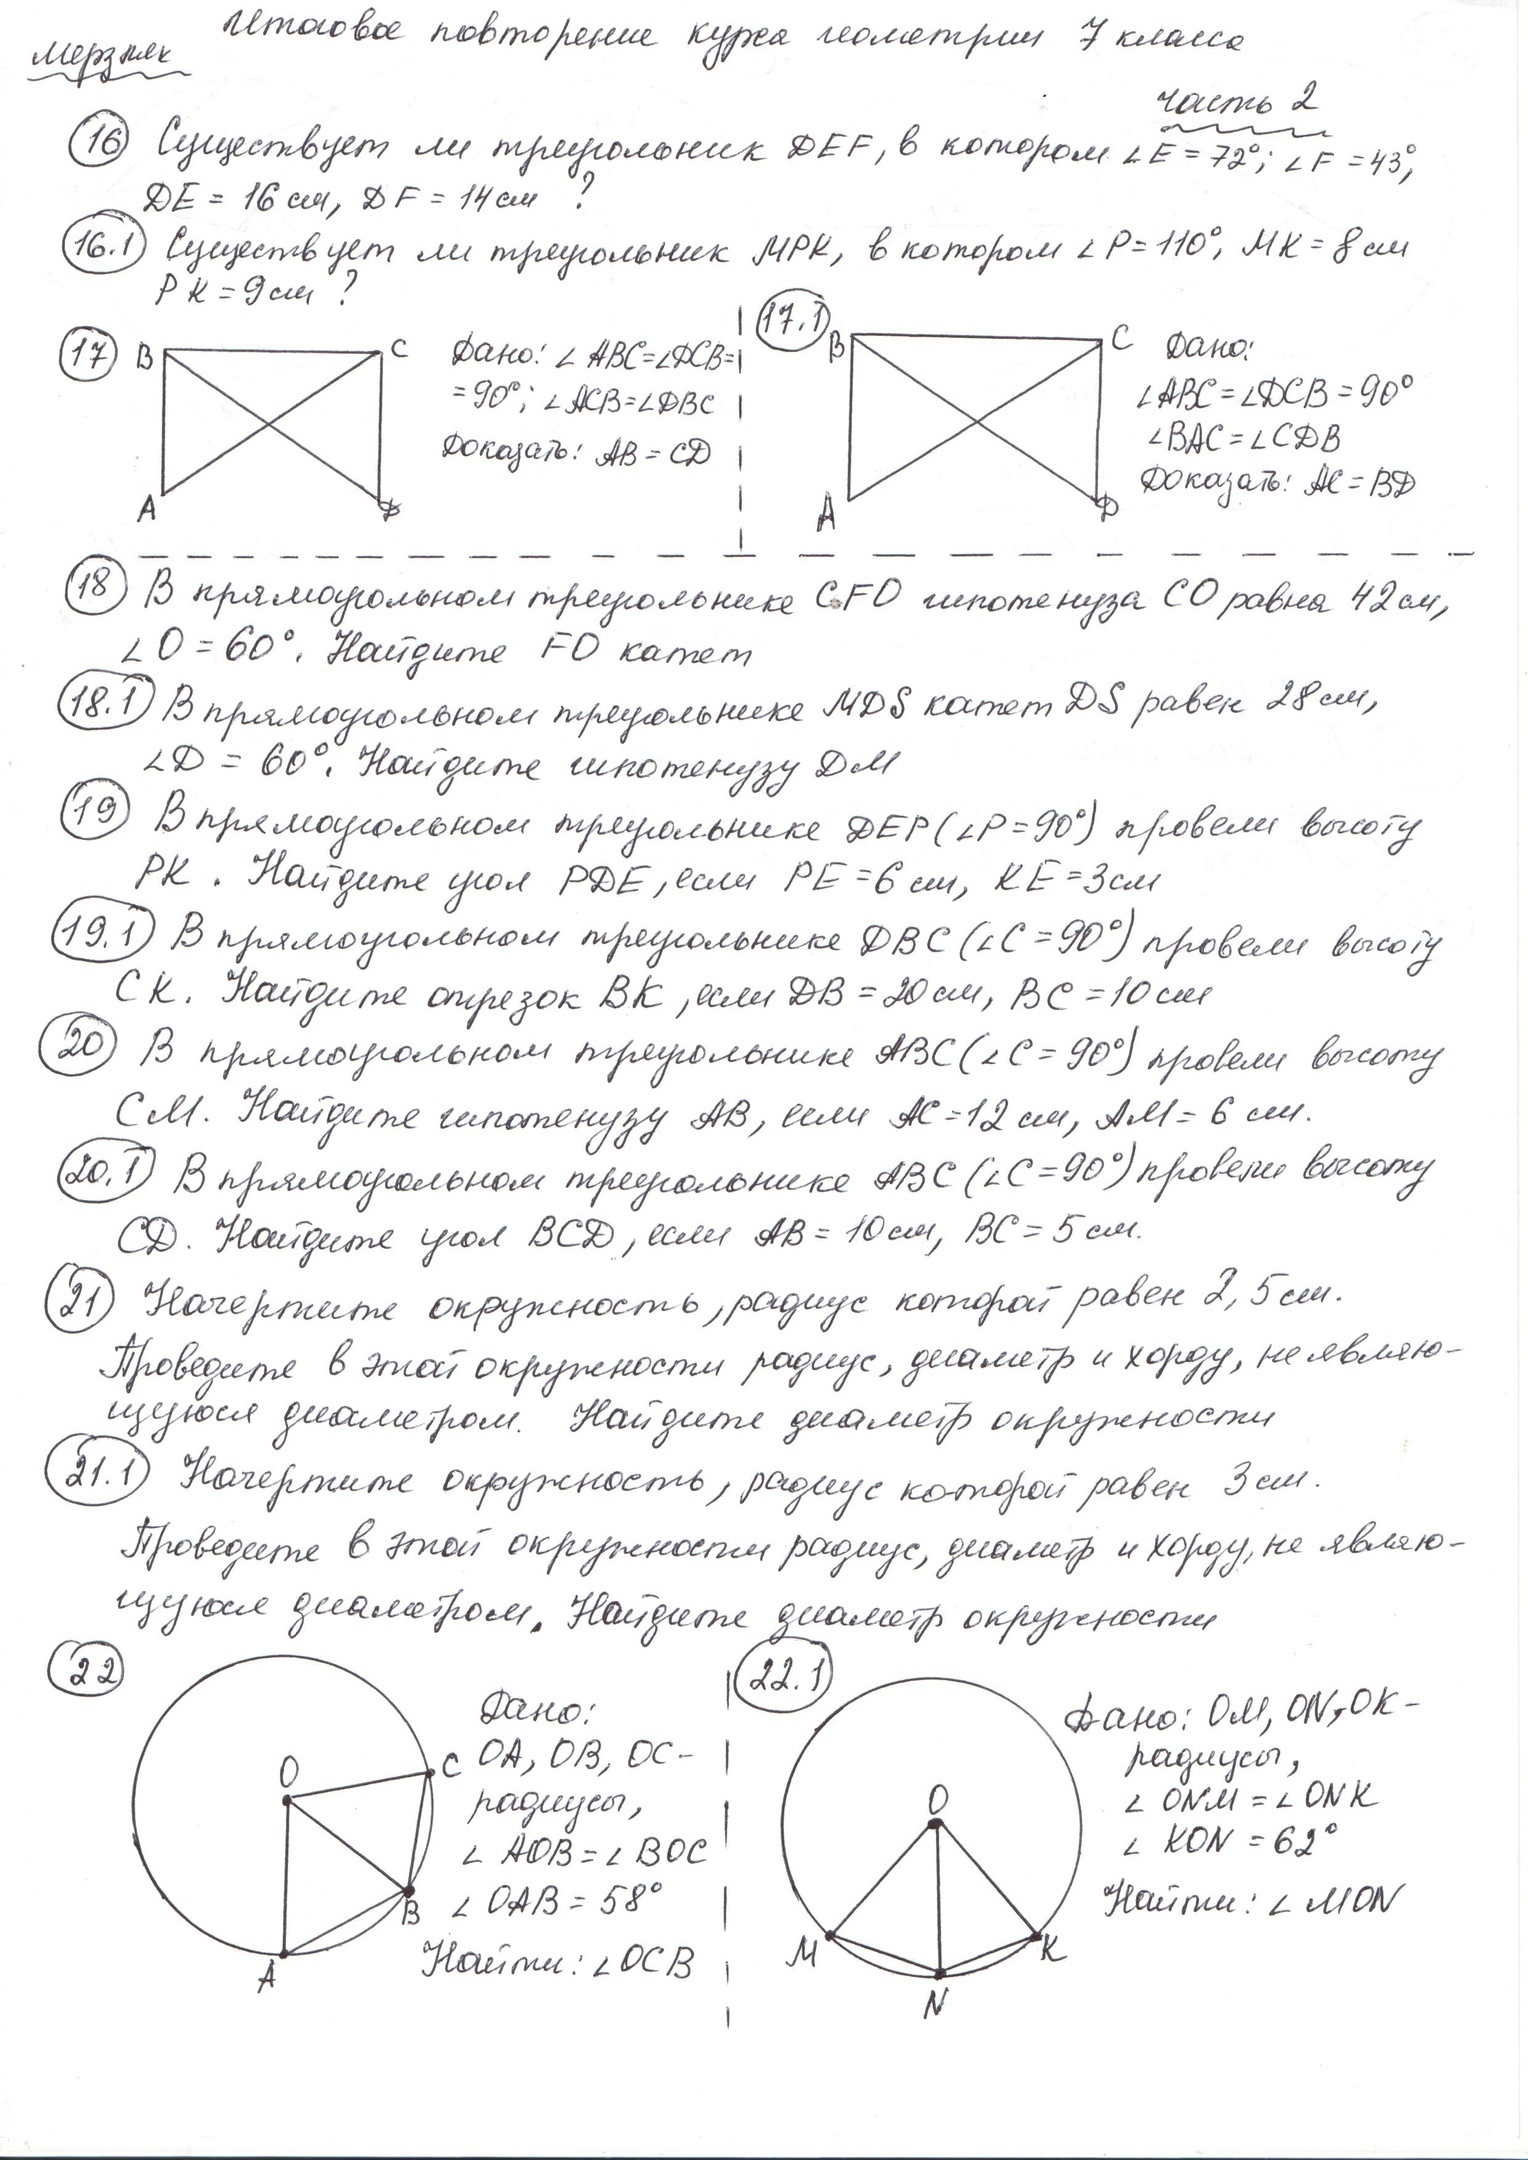 Итоговое повторение курса геометрии 7 класса
Мерзляк
часть 2
16 Существует ли треугольник DEF, в котором ∠E = 72°; ∠F = 43°,
DE = 16 см, DF = 14 см ?
16.1 Существует ли треугольник МРК, в котором ∠P = 110°, МК = 8 см
РК = 9 см ?
17
B
C
A
D
Дано: ∠ABC=∠DCB=
= 90°; ∠ACB=∠DBC
Доказать: AB = CD
17.1
B
C
A
D
Дано:
∠ABC = ∠DCB = 90°
∠BAC = ∠CDB
Доказать: AC = BD
18 В прямоугольном треугольнике CFO гипотенуза CO равна 42 см,
∠O = 60°. Найдите FO катет
18.1 В прямоугольном треугольнике MDS катет DS равен 28 см,
∠D = 60°. Найдите гипотенузу DM
19 В прямоугольном треугольнике DEP (∠P = 90°) провели высоту
PK. Найдите угол PDE, если PE = 6 см, KE = 3 см
19.1 В прямоугольном треугольнике DBC (∠C = 90°) провели высоту
CK. Найдите отрезок BK, если DB = 20 см, BC = 10 см
20 В прямоугольном треугольнике ABC (∠C = 90°) провели высоту
CM. Найдите гипотенузу AB, если AC = 12 см, AM = 6 см.
20.1 В прямоугольном треугольнике ABC (∠C = 90°) провели высоту
CD. Найдите угол BCD, если AB = 10 см, BC = 5 см.
21 Начертите окружность, радиус которой равен 2,5 см.
Проведите в этой окружности радиус, диаметр и хорду, не являю-
щуюся диаметром. Найдите диаметр окружности
21.1 Начертите окружность, радиус которой равен 3 см.
Проведите в этой окружности радиус, диаметр и хорду, не являю-
щуюся диаметром. Найдите диаметр окружности
22
O
C
B
A
Дано:
OA, OB, OC -
радиусы,
∠AOB = ∠BOC
∠OAB = 58°
Найти: ∠OCB
22.1
O
M
K
N
Дано: OM, ON, OK -
радиусы,
∠ONM = ∠ONK
∠KON = 62°
Найти: ∠MON